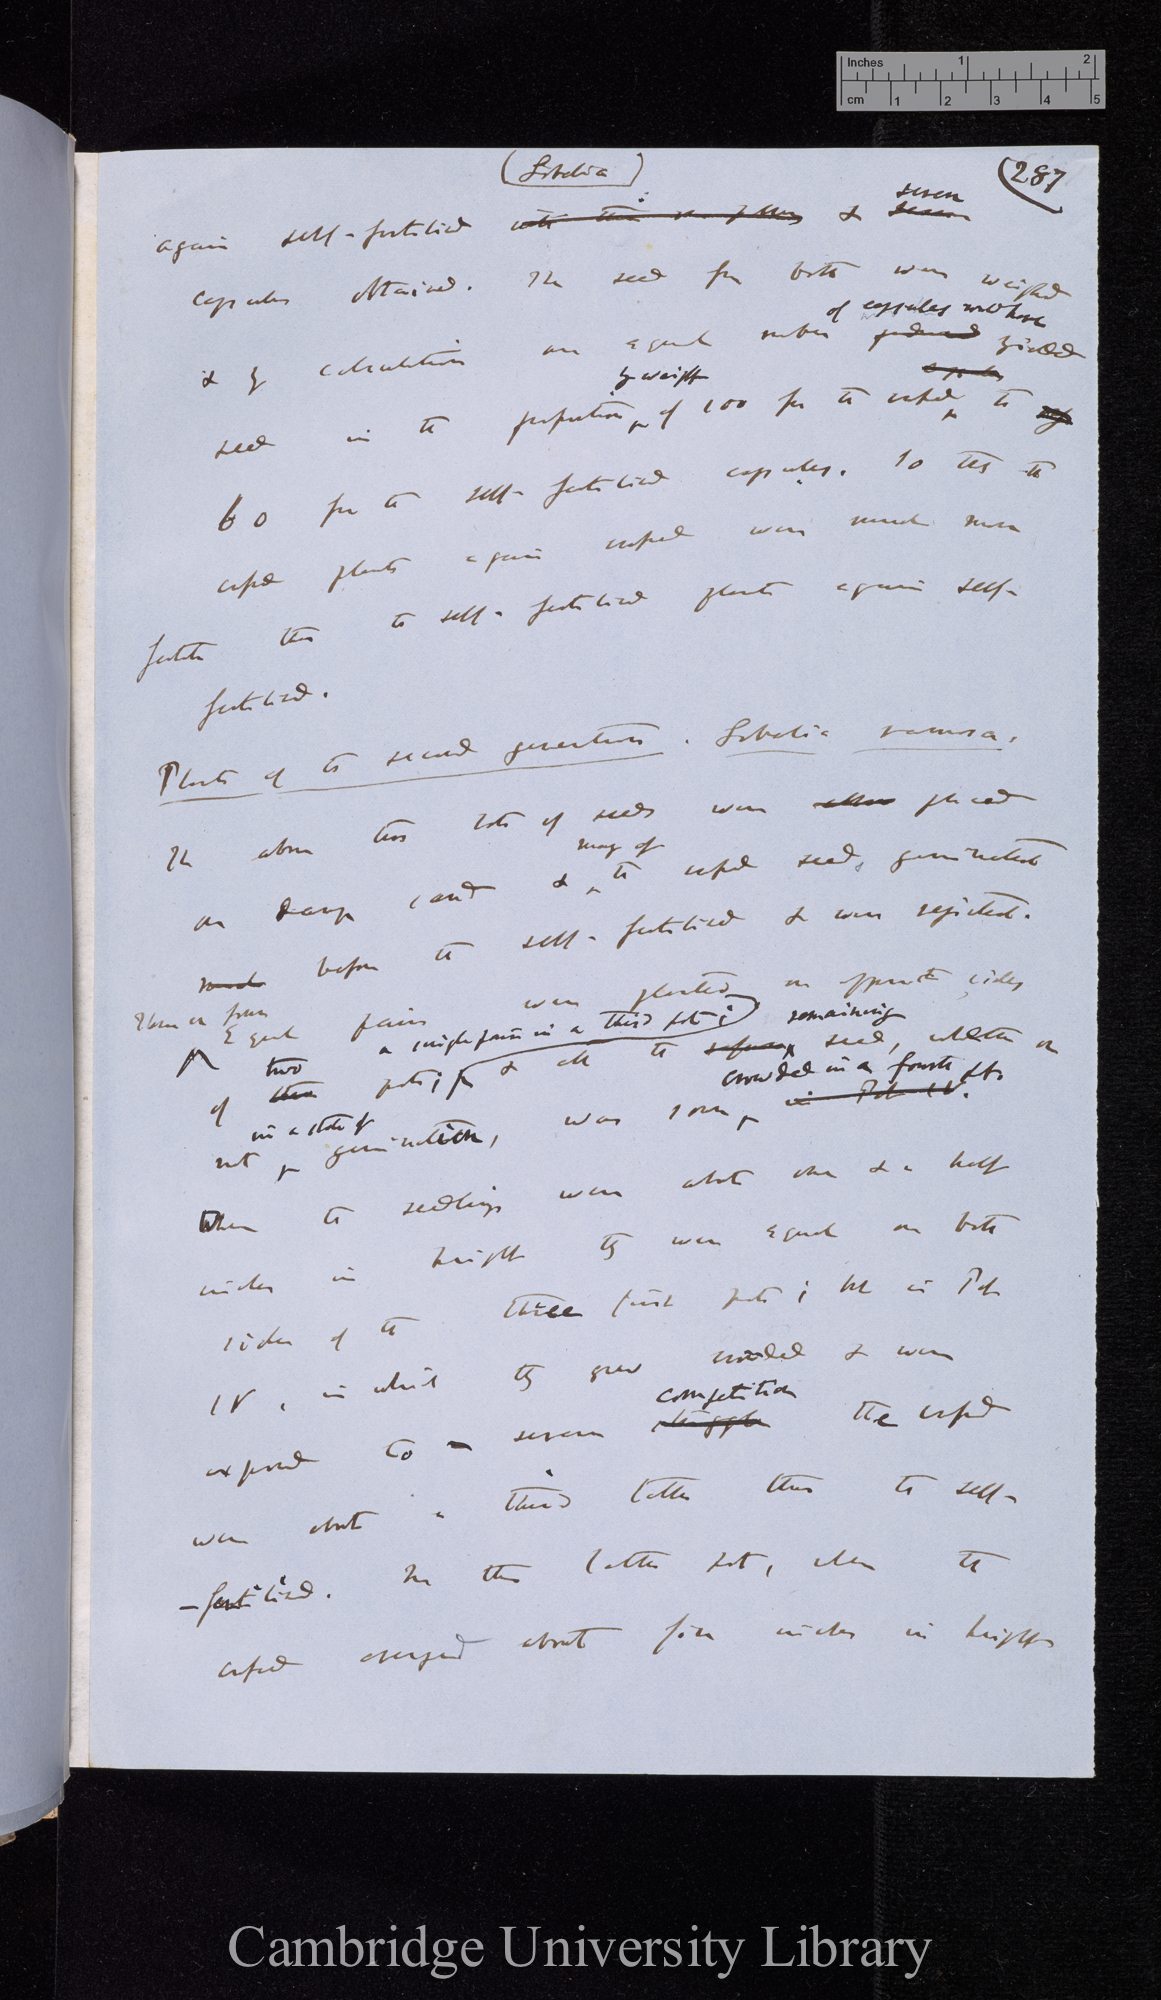 Inches 1 2
cm 1 2 3 4 5
(Lobelia)
(287
again self-fertilised & seven
seven
capsules obtained. The seed from both were weighed
of capsules would have
& by calculation an equal number produced yielded
by weight
capsules
seed in the proportion of 100 for the crossed to
60 for the self-fertilised capsules. So that the
crossed plants again crossed were much more
fertile than the self-fertilised plants again self-
fertilised.
Plants of the second generation. Lobelia ramosa.
The above two lots of seeds were placed
many of
on damp sand & the crossed seeds germinated
before the self-fertilised & were rejected.
Three or four
Equal pairs were planted on opposite sides
a single pair in a third pot;
remaining
two
of pots; & all the seed, whether or
crowded in a fourth pot.
in Pot IV.
in a state of
not germination, was sown
When the seedlings were about one & a half
inches in height they were equal on both
sides of the three first pots; but in Pot
IV, in which they grew crowded & were
competition
exposed to severe struggle the crossed
were about a third taller than the self-
-fertilised. In this latter pot, when the
crossed averaged about five inches in height
Cambridge University Library